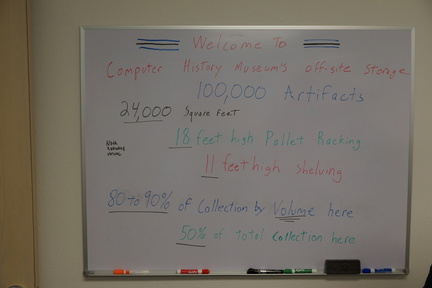 Welcome To
Computer History Museum's off-site Storage
100,000 Artifacts
24,000 Square Feet
18 feet high Pallet Racking
11 feet high Shelving
80 to 90% of Collection by Volume here
50% of Total Collection here